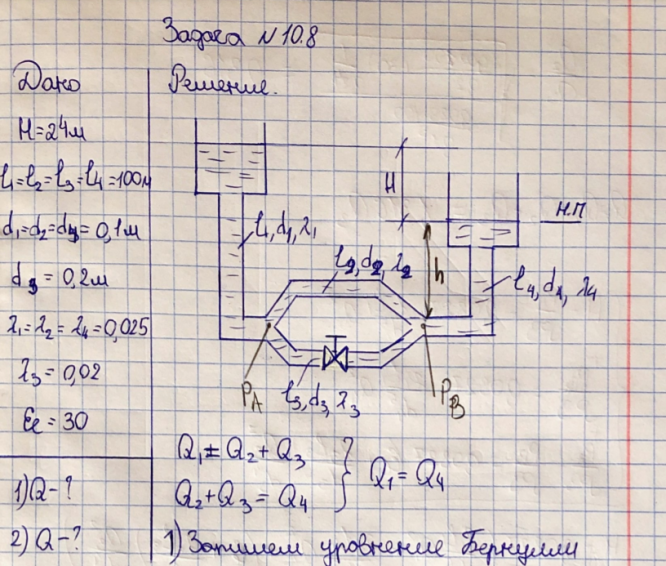 Задача №10.8
Дано
H=24м
l1=l2=l3=l4=100м
d1=d2=d4=0,1м
d3=0,2м
λ1=λ2=λ4=0,025
λ3=0,02
ξк=30
1) Q-?
2) Q-?
Решение.
H
Н.П
l1, d1, λ1
l2, d2, λ2
h
l4, d4, λ4
PA
l3, d3, λ3
PB
Q1=Q2+Q3
Q2+Q3=Q4
Q1=Q4
1) Запишем уровнение Бернулли